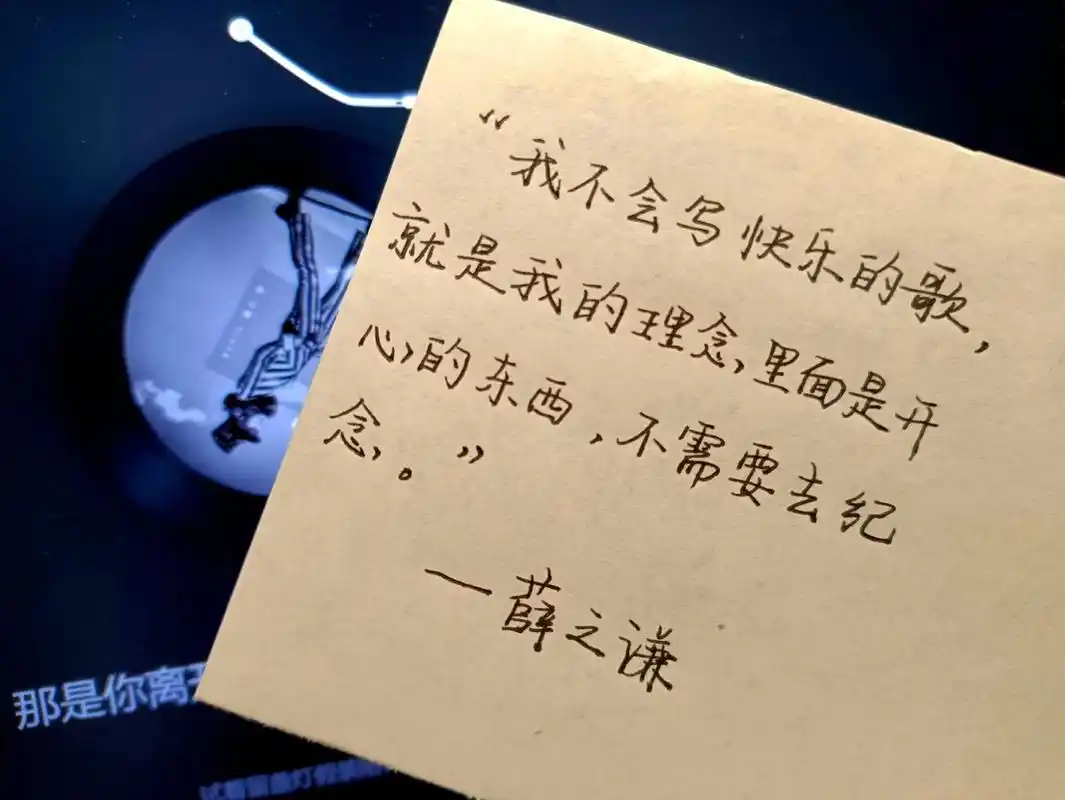 “我不会写快乐的歌，
就是我的理念，里面是开
心的东西，不需要去纪
念。”
—薛之谦
那是你离